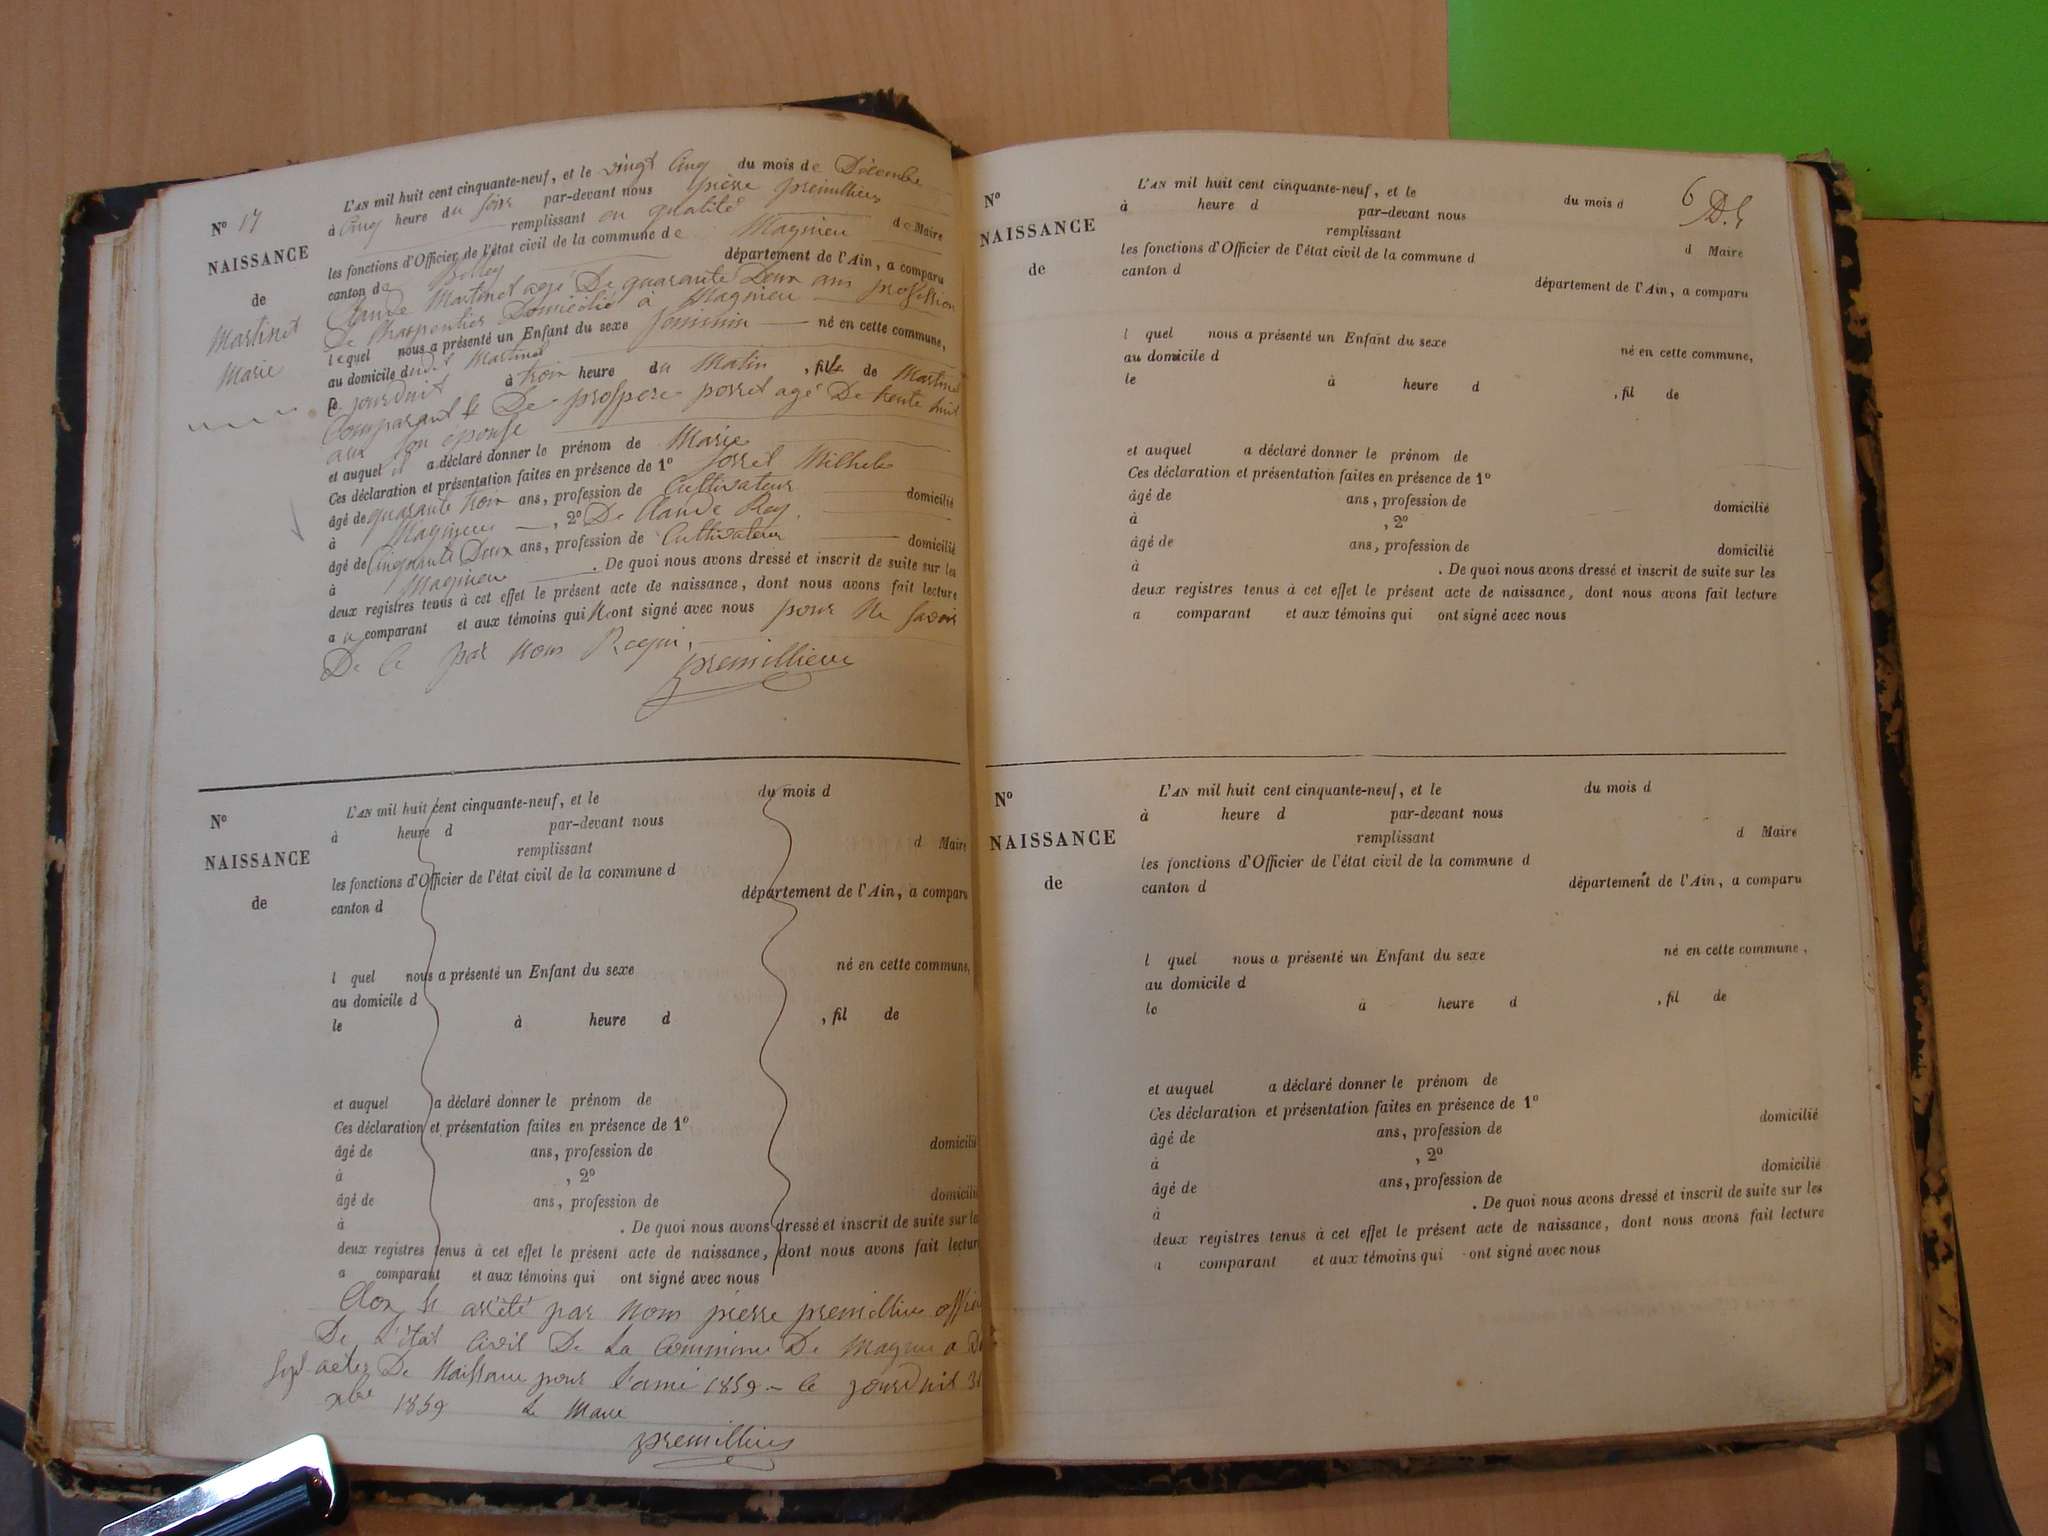 N° 17
NAISSANCE
de
Martinet
Marie
L'AN mil huit cent cinquante-neuf, et le vingt Cinq du mois de Décembre
à Cinq heure du soir par-devant nous pierre premillieu
remplissant en qualité de Maire
les fonctions d'Officier de l'état civil de la commune de Magnieu
canton de Belley département de l'Ain, a comparu
Claude Martinet agé De quarante Deux ans profession
De Charpentier Domicilié à Magnieu
lequel nous a présenté un Enfant du sexe feminin né en cette commune,
au domicile dudit Martinet
Ce jourduit à trois heure du Matin, fille de Martinet
Comparant & De prospere porret agé De trente huit
ans son épouse
et auquel il a déclaré donner le prénom de Marie
Ces déclaration et présentation faites en présence de 1°
âgé de quarante trois ans, profession de Cultivateur domicilié
à Magnieu , 2° De Claude Rey
âgé de Cinquante Deux ans, profession de Cultivateur domicilié
à Magnieu . De quoi nous avons dressé et inscrit de suite sur les
deux registres tenus à cet effet le présent acte de naissance, dont nous avons fait lecture
au comparant et aux témoins qui N'ont signé avec nous pour Ne savoir
De ce par nous Requi.
premillieu
N°
NAISSANCE
de
L'AN mil huit cent cinquante-neuf, et le du mois d
à heure d par-devant nous
remplissant d Maire
les fonctions d'Officier de l'état civil de la commune d
canton d département de l'Ain, a comparu
l quel nous a présenté un Enfant du sexe né en cette commune,
au domicile d
le à heure d , fil de
et auquel a déclaré donner le prénom de
Ces déclaration et présentation faites en présence de 1°
âgé de ans, profession de domicilié
à , 2°
âgé de ans, profession de domicilié
à . De quoi nous avons dressé et inscrit de suite sur les
deux registres tenus à cet effet le présent acte de naissance, dont nous avons fait lecture
a comparant et aux témoins qui ont signé avec nous
Clos & arrété par Nous pierre premillieu officier
De L'état Civil De La Commune De Magnieu a Dix
sept actes De Naissance pour l'année 1859 - ce jourduit 31
xbre 1859 Le Maire
premillieu
6 D.G
N°
NAISSANCE
de
L'AN mil huit cent cinquante-neuf, et le du mois d
à heure d par-devant nous
remplissant d Maire
les fonctions d'Officier de l'état civil de la commune d
canton d département de l'Ain, a comparu
l quel nous a présenté un Enfant du sexe né en cette commune,
au domicile d
le à heure d , fil de
et auquel a déclaré donner le prénom de
Ces déclaration et présentation faites en présence de 1°
âgé de ans, profession de domicilié
à , 2°
âgé de ans, profession de domicilié
à . De quoi nous avons dressé et inscrit de suite sur les
deux registres tenus à cet effet le présent acte de naissance, dont nous avons fait lecture
a comparant et aux témoins qui ont signé avec nous
N°
NAISSANCE
de
L'AN mil huit cent cinquante-neuf, et le du mois d
à heure d par-devant nous
remplissant d Maire
les fonctions d'Officier de l'état civil de la commune d
canton d département de l'Ain, a comparu
l quel nous a présenté un Enfant du sexe né en cette commune,
au domicile d
le à heure d , fil de
et auquel a déclaré donner le prénom de
Ces déclaration et présentation faites en présence de 1°
âgé de ans, profession de domicilié
à , 2°
âgé de ans, profession de domicilié
à . De quoi nous avons dressé et inscrit de suite sur les
deux registres tenus à cet effet le présent acte de naissance, dont nous avons fait lecture
a comparant et aux témoins qui ont signé avec nous